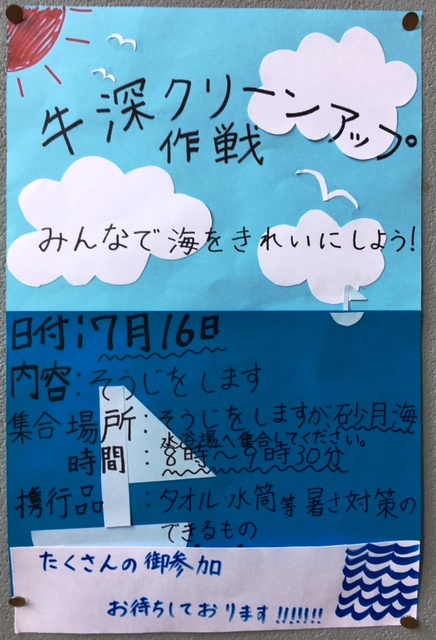 牛深クリーンアップ
作戦
みんなで海をきれいにしよう!
日付:7月16日
内容:そうじをします
集合場所:そうじをしますが砂月海
水浴場へ集合してください。
時間:8時〜9時30分
携行品:タオル・水筒等暑さ対策の
できるもの
たくさんの御参加
お待ちしております!!!!!!!